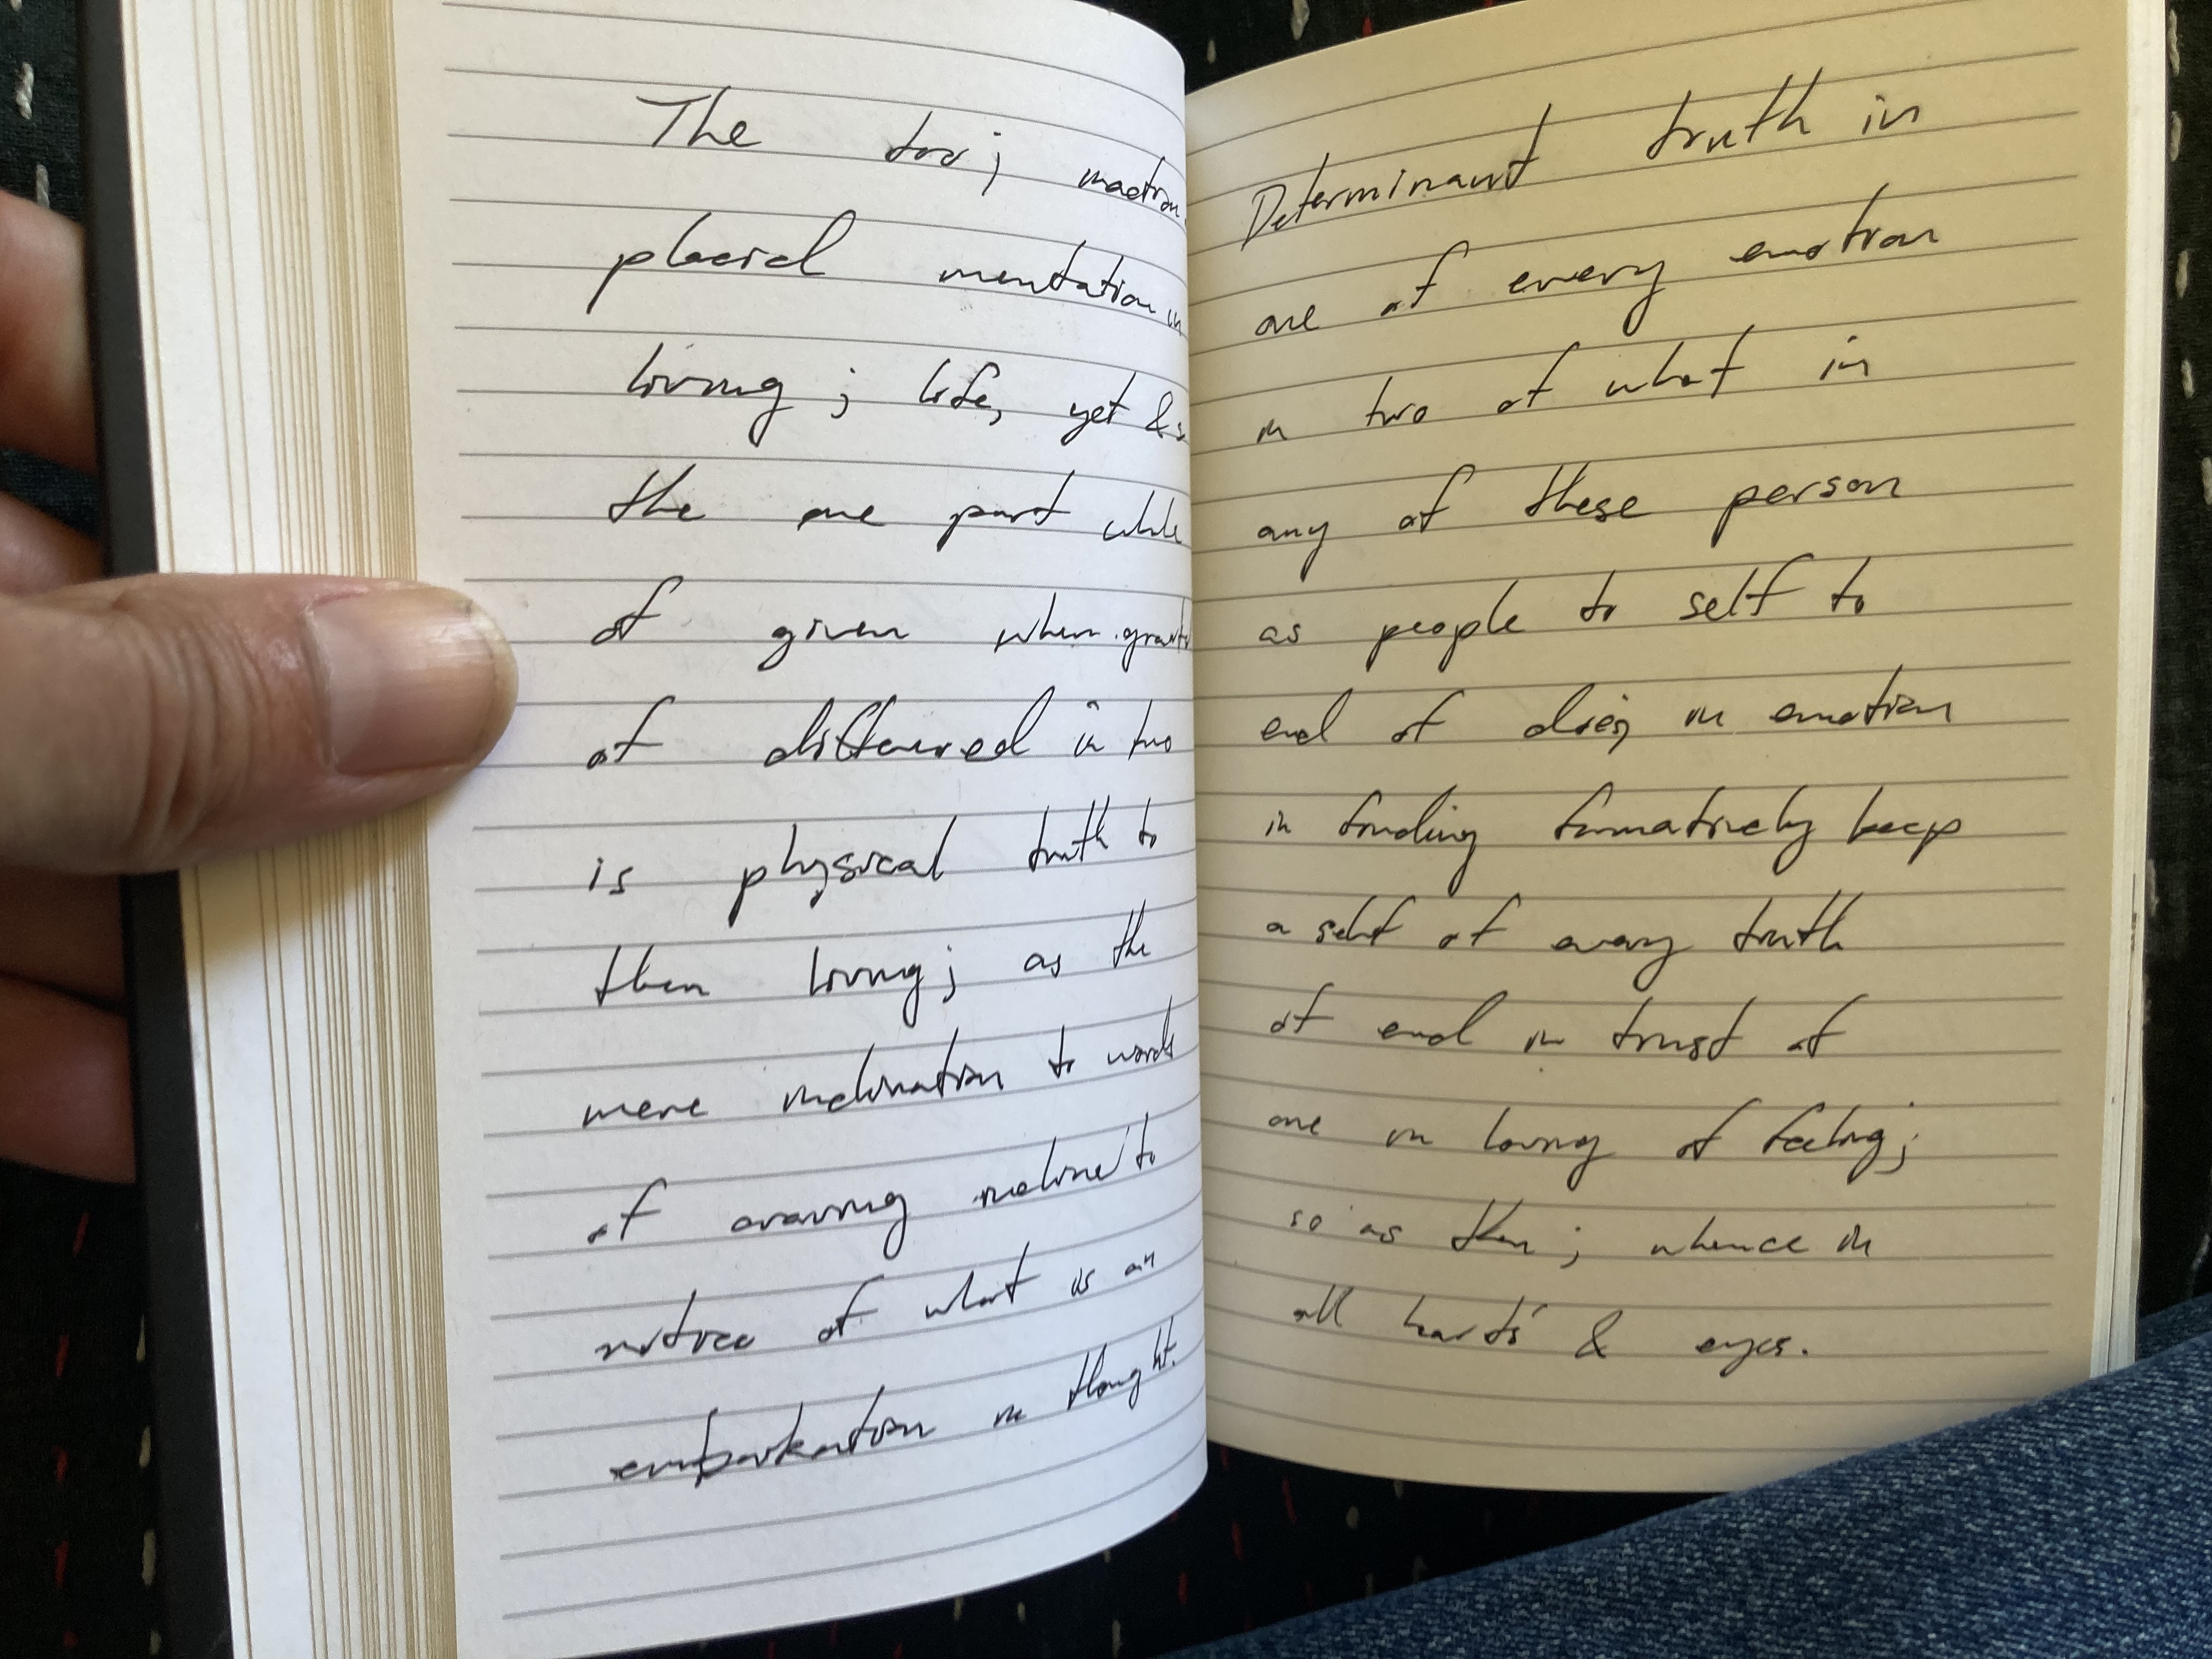 The
placid mentation in
living; life, yet &
the one part while
of given when
of differed in two
is physical truth to
then living; as the
mere inclination to words
of
notice of what is an
embarkation in thought.
Determinant truth in
one of every emotion
in two of what in
any of these person
as people to self to
end of in emotion
in formatively keep
a self of every truth
of end in trust of
one in loving of feeling;
so as then; whence in
all & eyes.